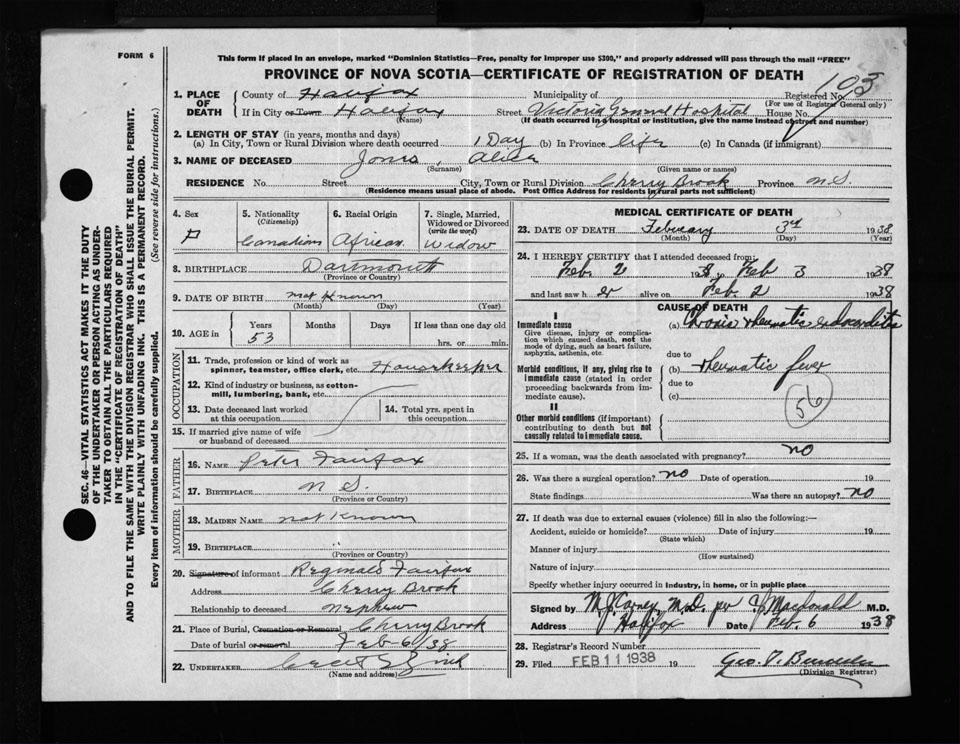 FORM 6
This form if placed in an envelope, marked "Dominion Statistics—Free, penalty for improper use $300," and properly addressed will pass through the mail "FREE"
PROVINCE OF NOVA SCOTIA—CERTIFICATE OF REGISTRATION OF DEATH
103
1. PLACE OF DEATH County of Halifax Municipality of Registered No.
(For use of Registrar General only)
If in City or Town Halifax Street Victoria General Hospital House No.
(Name) (If death occurred in a hospital or institution, give the name instead of street and number)
2. LENGTH OF STAY (in years, months and days)
(a) In City, Town or Rural Division where death occurred 1 Day (b) In Province life (c) In Canada (if immigrant)
3. NAME OF DECEASED Jones, Alice
(Surname) (Given name or names)
RESIDENCE No. Street City, Town or Rural Division Cherry Brook Province N.S.
(Residence means usual place of abode. Post Office Address for residents in rural parts not sufficient)
4. Sex F
5. Nationality (Citizenship) Canadian
6. Racial Origin African
7. Single, Married, Widowed or Divorced (write the word) Widow
8. BIRTHPLACE Dartmouth
(Province or Country)
9. DATE OF BIRTH not known
(Month) (Day) (Year)
10. AGE in Years Months Days If less than one day old
53 hrs. or min.
OCCUPATION
11. Trade, profession or kind of work as spinner, teamster, office clerk, etc. Housekeeper
12. Kind of industry or business, as cotton-mill, lumbering, bank, etc.
13. Date deceased last worked at this occupation
14. Total yrs. spent in this occupation
15. If married give name of wife or husband of deceased
FATHER
16. NAME Peter Fairfax
17. BIRTHPLACE N S.
(Province or Country)
MOTHER
18. MAIDEN NAME not known
19. BIRTHPLACE
(Province or Country)
20. Signature of informant Reginald Fairfax
Address Cherry Brook
Relationship to deceased nephew
21. Place of Burial, Cremation or Removal Cherry Brook
Date of burial or removal Feb-6/38
22. UNDERTAKER Cecil E Zink
(Name and address)
MEDICAL CERTIFICATE OF DEATH
23. DATE OF DEATH February 3rd 1938
(Month) (Day) (Year)
24. I HEREBY CERTIFY that I attended deceased from:
Feb. 2 1938 to Feb 3 1938
and last saw her alive on Feb. 2 1938
CAUSE OF DEATH
I
Immediate cause (a) Chronic rheumatic endocarditis
Give disease, injury or complication which caused death, not the mode of dying, such as heart failure, asphyxia, asthenia, etc.
due to
Morbid conditions, if any, giving rise to immediate cause (stated in order proceeding backwards from immediate cause).
(b) rheumatic fever
due to
(c)
56
II
Other morbid conditions (if important) contributing to death but not causally related to immediate cause.
25. If a woman, was the death associated with pregnancy? no
26. Was there a surgical operation? no Date of operation 19
State findings Was there an autopsy? no
27. If death was due to external causes (violence) fill in also the following:—
Accident, suicide or homicide? Date of injury 19
(State which)
Manner of injury
(How sustained)
Nature of injury
Specify whether injury occurred in industry, in home, or in public place
Signed by M.J. Carney, M.D. per J. Macdonald M.D.
Address Halifax Date Feb. 6 1938
28. Registrar's Record Number
29. Filed FEB 11 1938 19 Geo.
(Division Registrar)
SEC. 46—VITAL STATISTICS ACT MAKES IT THE DUTY
OF THE UNDERTAKER OR PERSON ACTING AS UNDER-
TAKER TO OBTAIN ALL THE PARTICULARS REQUIRED
IN THE "CERTIFICATE OF REGISTRATION OF DEATH"
AND TO FILE THE SAME WITH THE DIVISION REGISTRAR WHO SHALL ISSUE THE BURIAL PERMIT.
WRITE PLAINLY WITH UNFADING INK. THIS IS A PERMANENT RECORD.
Every item of information should be carefully supplied. (See reverse side for instructions.)